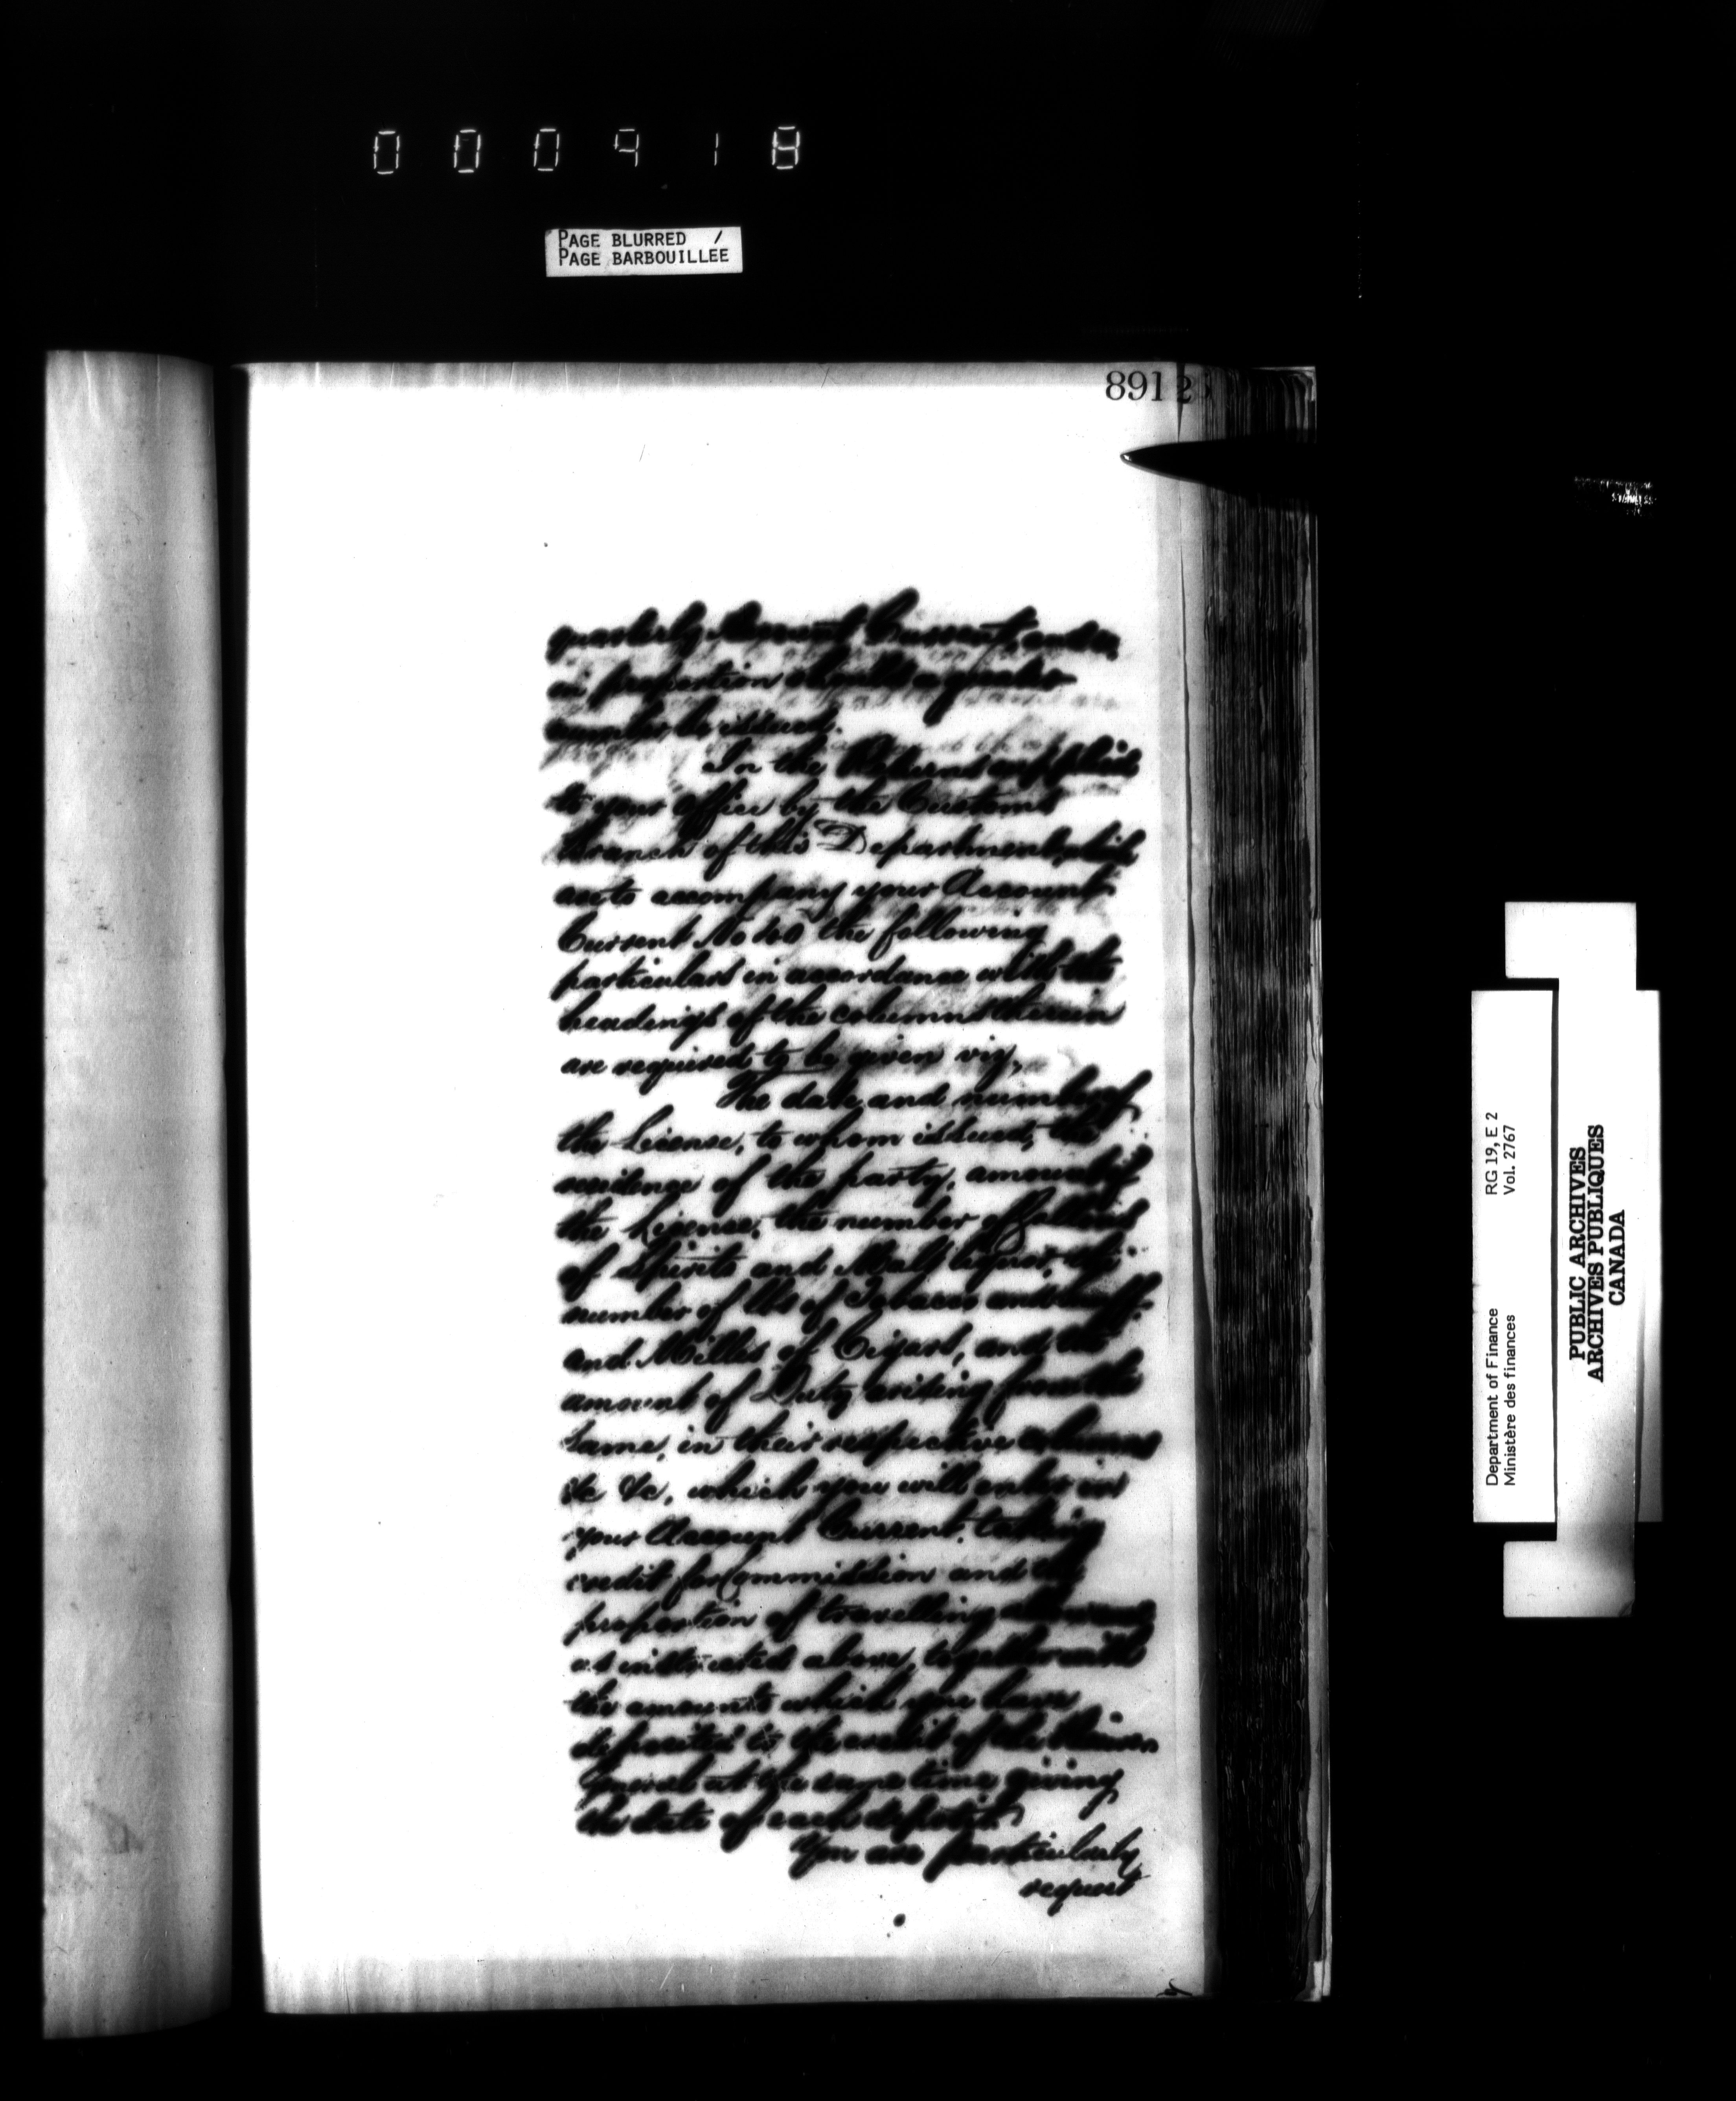 000918
PAGE BLURRED /
PAGE BARBOUILLÉE
891
quarterly Account Current, and
in proportion should a greater
number be issued.
In the Returns supplied
to your office by the Customs
Branch of this Department which
are to accompany your Account
Current No the following
particulars in accordance with the
headings of the columns therein
are required to be given viz,
The date and number of
the License, to whom issued, the
residence of the party, amount of
the License, the number of Gallons
of Spirits and Malt liquor, the
number of lbs of Tobacco and Snuff
and Milles of Cigars, and the
amount of Duty arising from the
same, in their respective columns
&c &c, which you will enter in
your Account Current, taking
credit for Commission and the
proportion of travelling allowance
as instructed above, together with
the amounts which you have
deposited to the credit of the Receiver
General at the same time giving
the date of each deposit.
You are particularly
request
Department of Finance RG 19, E 2
Ministère des finances Vol. 2767
PUBLIC ARCHIVES
ARCHIVES PUBLIQUES
CANADA